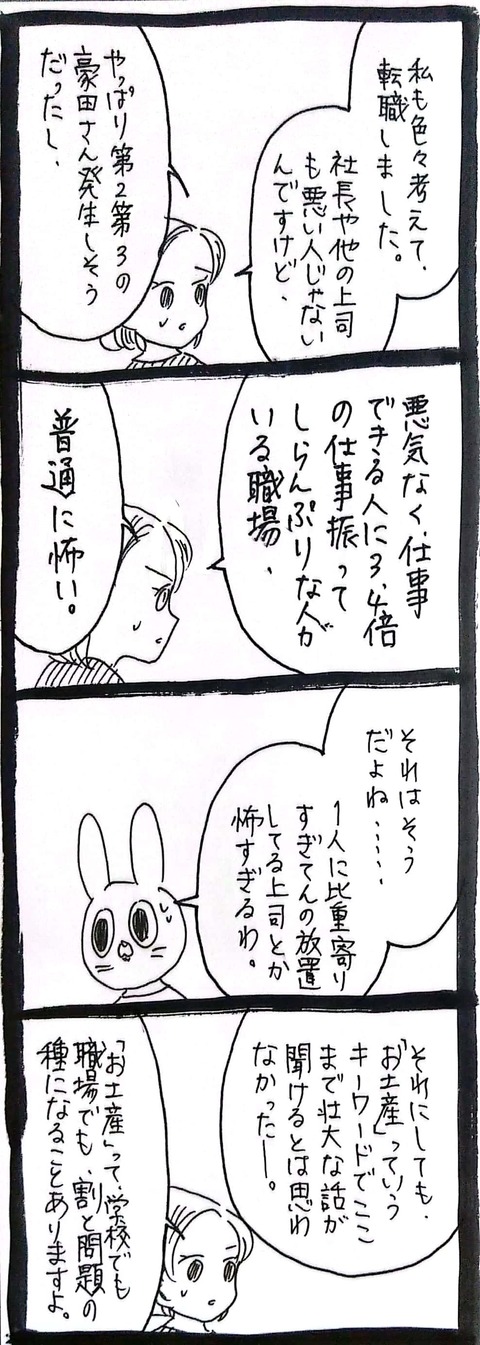 私も色々考えて、
転職しました。
社長や他の上司
も悪い人じゃない
んですけど、
やっぱり第2第3の
豪田さん発生しそう
だったし、
悪気なく、仕事
できる人に3、4倍
の仕事振って
しらんぷりな人が
いる職場、
普通に怖い。
それはそう
だよね……
1人に比重寄り
すぎてんの放置
してる上司とか
怖すぎるわ。
それにしても、
「お土産」っていう
キーワードでここ
まで壮大な話が
聞けるとは思わ
なかったー。
「お土産」って、学校でも
職場でも、割と問題の
種になることありますよ。